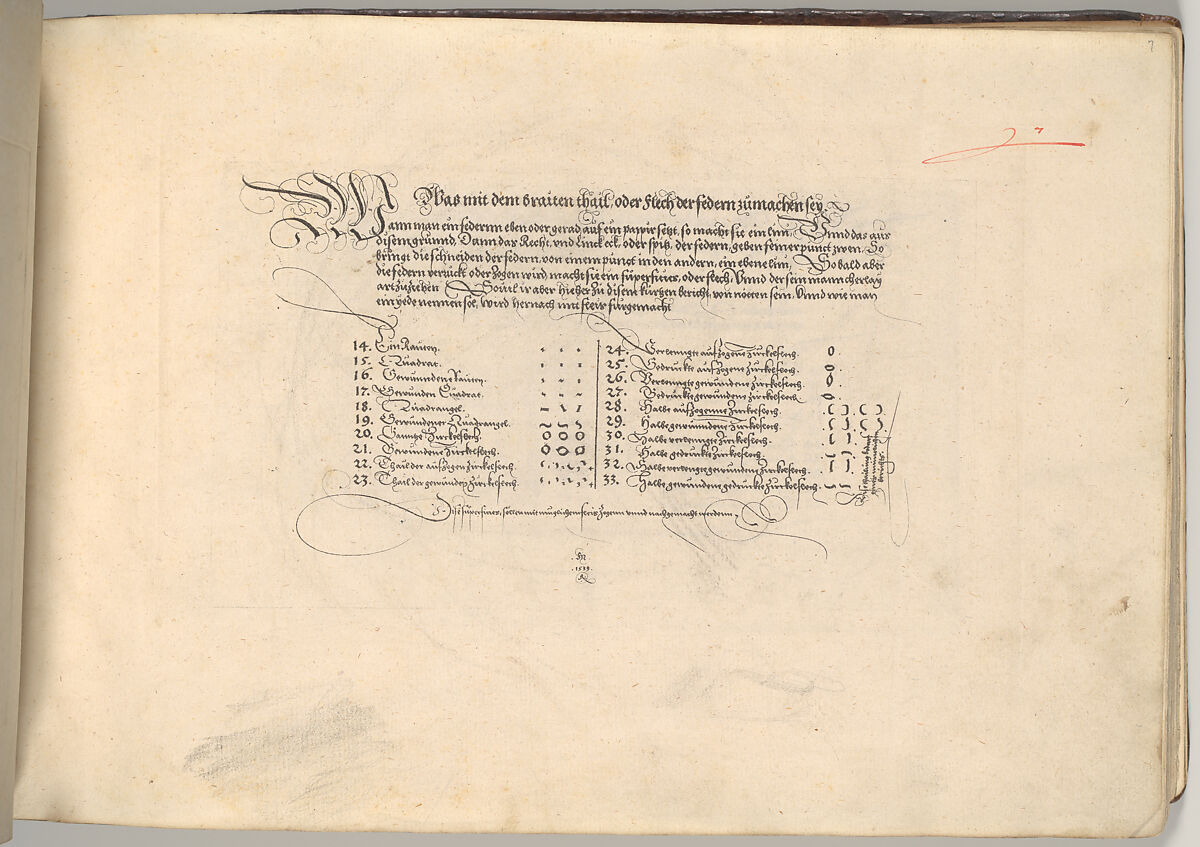 7
7
Was mit dem braiten thail, oder flech der federn zumachen sey
Wann man ein federnn eben oder gerad auf ein pappir setzt, so macht sie ein lini, Vnnd das aus
disem grŭnnd, Dann das Recht, vnd linck eck, oder spitz, der federn, geben seiner pŭnct zwen. So
bringt die schneiden der federn, von einem pŭnct in den andern, ein ebene lini, So bald aber
die federn verückt oder zogen wird, macht sie ein sŭperficies, oder flech, Vnnd der sein mancherlay
art zuziehen Souil ir aber hieher zu disem kŭrtzen bericht, von nötten sein, Vnnd wie man
ein yede nennen sol, wird hernach mit fleis fŭrgemacht
14. Ein Rauten.
15. Quadrat.
16. Gewundene Rauten.
17. Gewunden Quadrat.
18. Quadrangel.
19. Gewundener Quadrangel.
20. Ganntze Zirckelflech.
21. Gewundene Zirckelflech.
22. Thail der aufzogen zirckelflech.
23. Thail der gewunden Zirckelflech.
24. Verlenngte aufzogene Zirckelflech.
25. Gedrŭckte aufzogene zirckelflech.
26. Verlenngte gewundene zirckelflech.
27. Gedrŭckte gewundene zirckelflech.
28. Halbe aufzogenne zirckelflech.
29. Halbe gewundenne Zirckelflech.
30. Halbe verlenngte zirckelflech.
31. Halbe gedrŭckte zirckelflech.
32. Halbe verlengte gewundene zirckelflech.
33. Halbe gewundene gedrŭckte zirckelflech.
Dise sŭperficies, sollen mit mŭglichem fleis zogenn vnnd nachgemacht werdenn
.SN.
.1539.